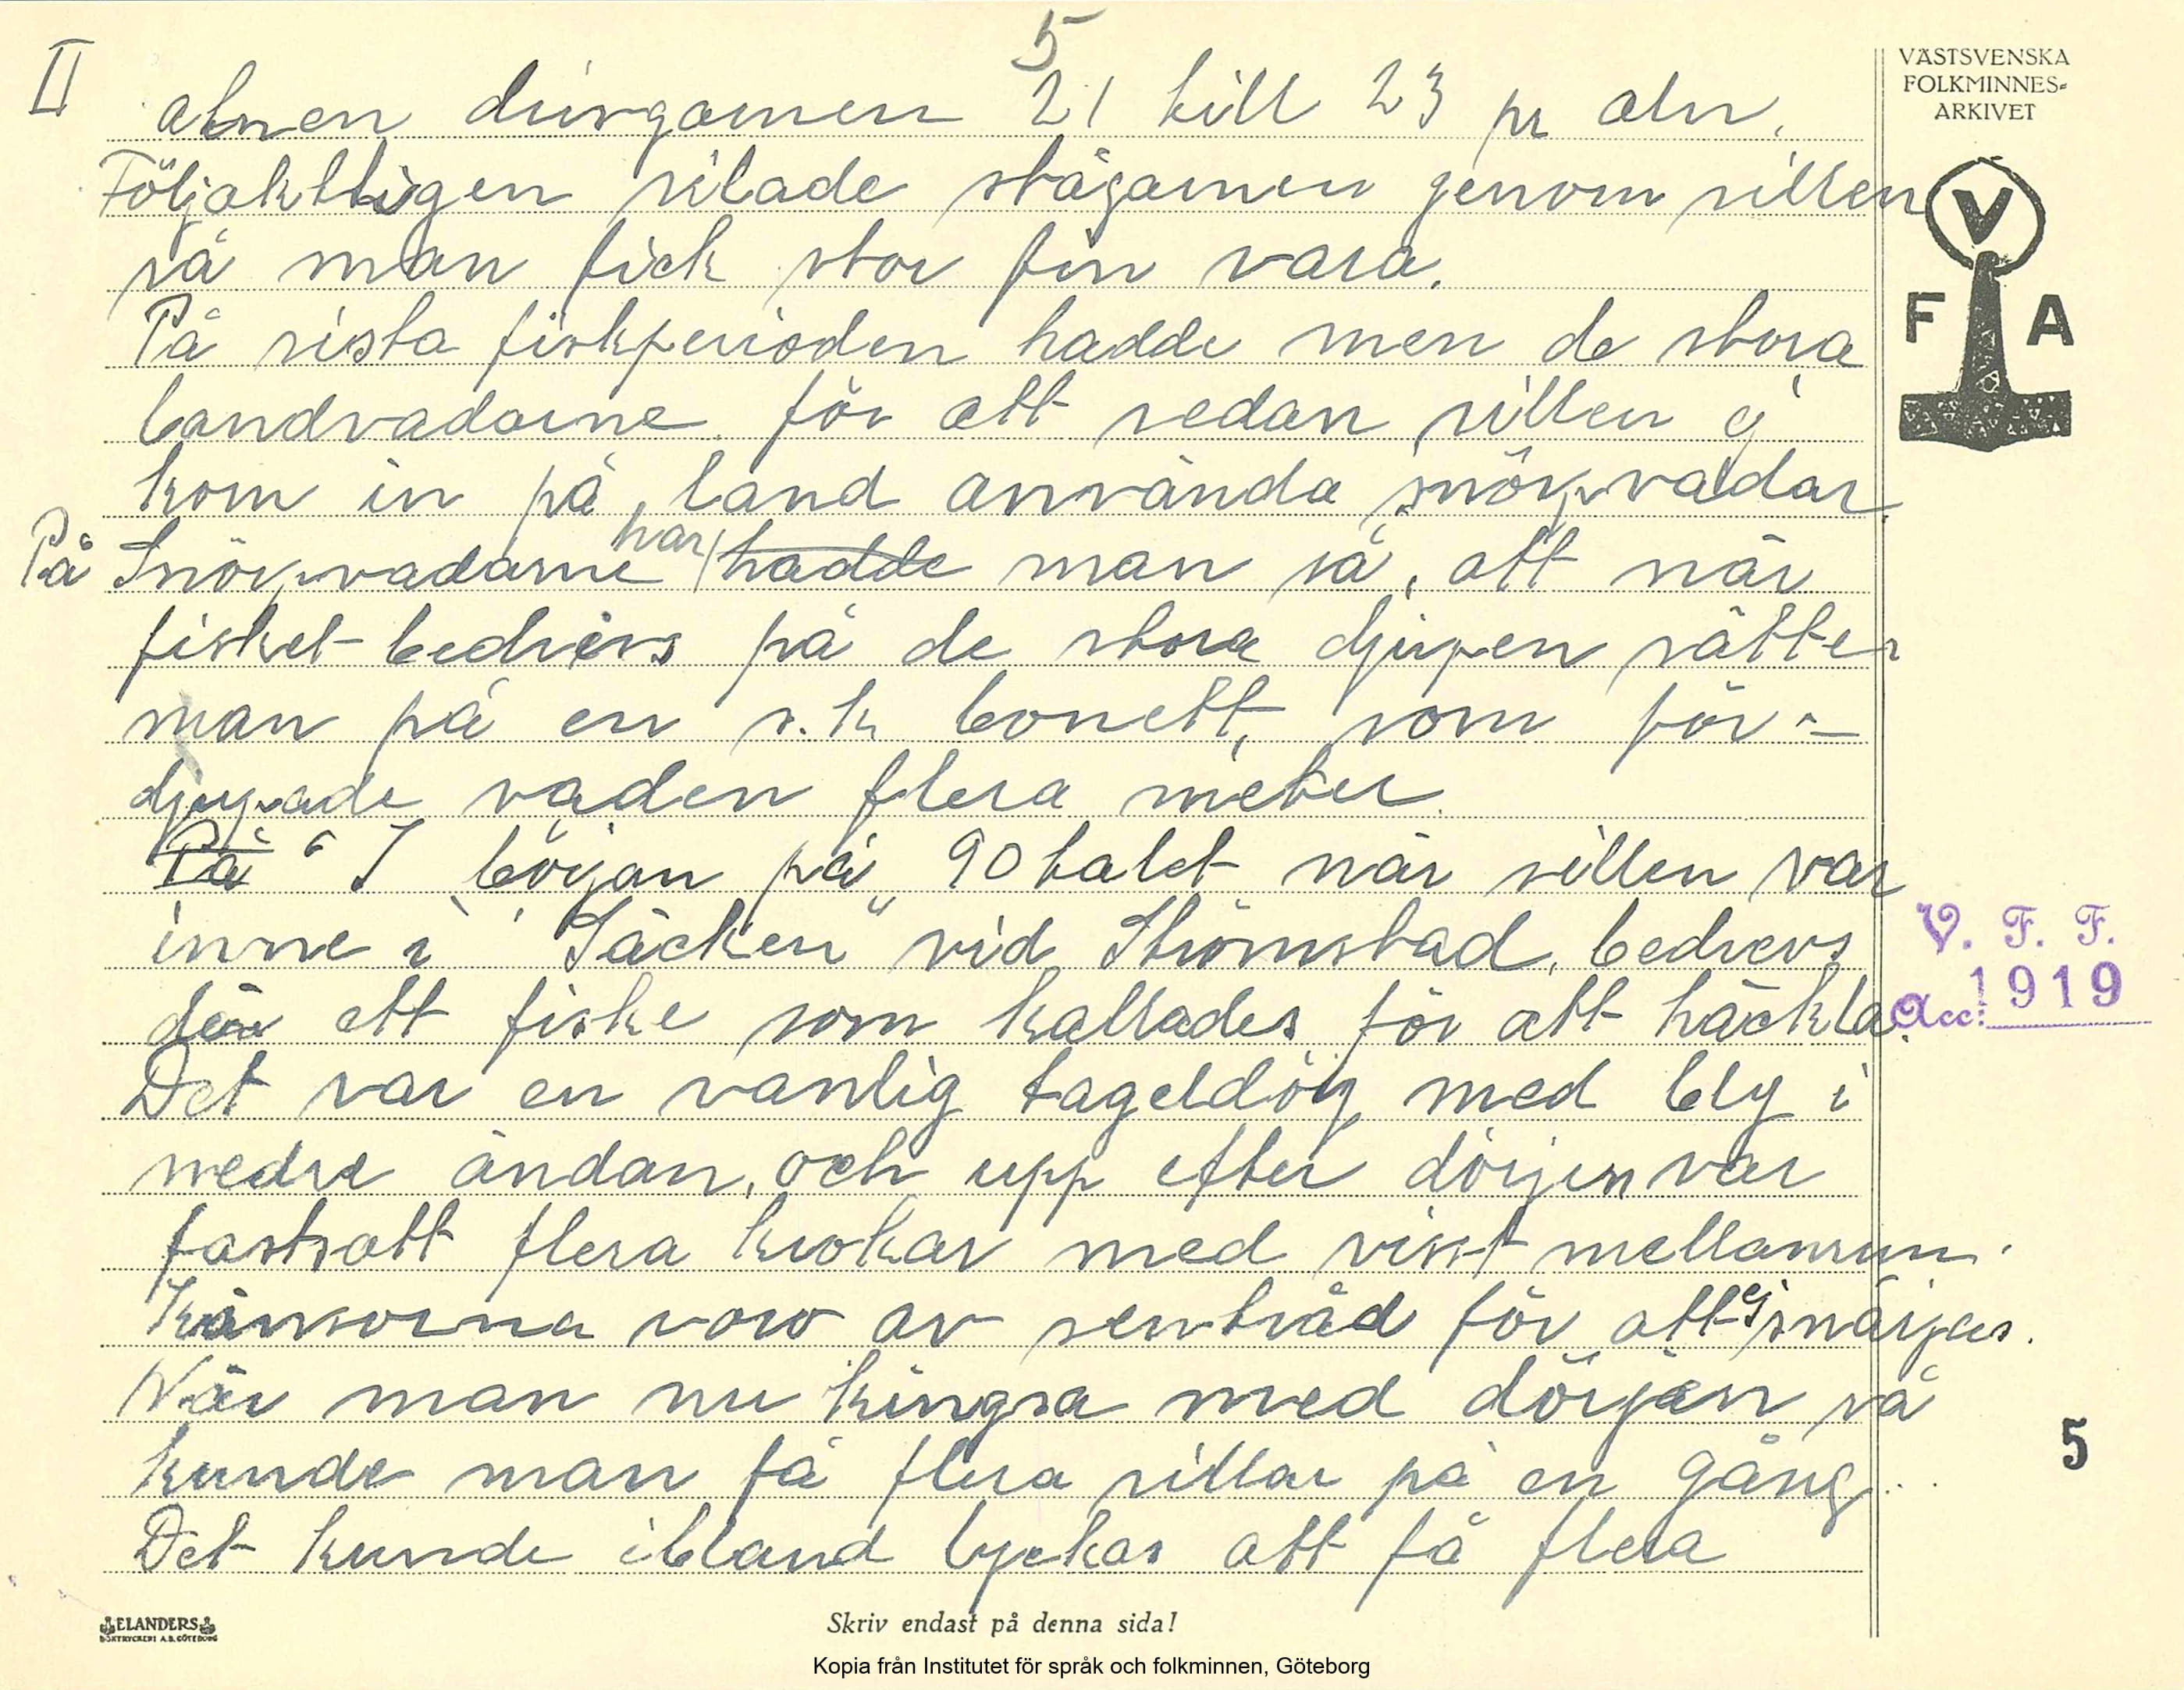 II
5
alnen drivgarnen 21 till 23 pr aln.
Följaktligen silade stågarnen genom sillen
så man fick stor fin vara.
På sista fiskperioden hadde men de stora
landvadarne för att sedan sillen ej
kom in på land använda snörpvadar.
På Snörpvadarne har hadde man så, att när
fisket bedrivs på de stora djupen sätter
man på en s.k bonett, som för-
djupade vaden flera meter.
På I början på 90talet när sillen var
inne i "Säcken" vid Strömstad, bedrevs
där ett fiske som kallades för att häckla.
Det var en vanlig tageldörj med bly i
nedre ändan, och upp efter dörjen var
fastsatt flera krokar med visst mellanrum.
voro av sentråd för att ej snärjas.
När man nu kingsa med dörjen så
kunde man få flera sillar på en gång.
Det kunde ibland lyckas att få flera
VÄSTSVENSKA
FOLKMINNES-
ARKIVET
V
F A
V. F. F.
Acc: 1919
5
ELANDERS
BOKTRYCKERI A.B. GÖTEBORG
Skriv endast på denna sida!
Kopia från Institutet för språk och folkminnen, Göteborg